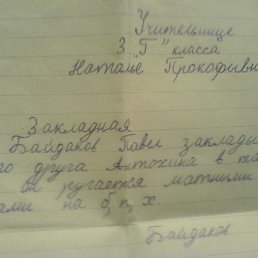 Учительнице
3 "Г" класса
Наталье Прокофьевн
Закладная
Байдаков Павел заклады
го друга Антохина в то
он ругается матными
ами на б, п, х
Байдаков